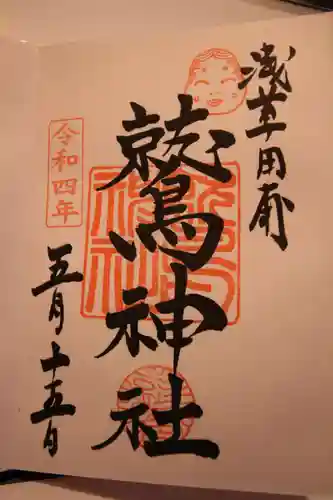 浅草田甫
鷲神社
令和四年
五月十五日